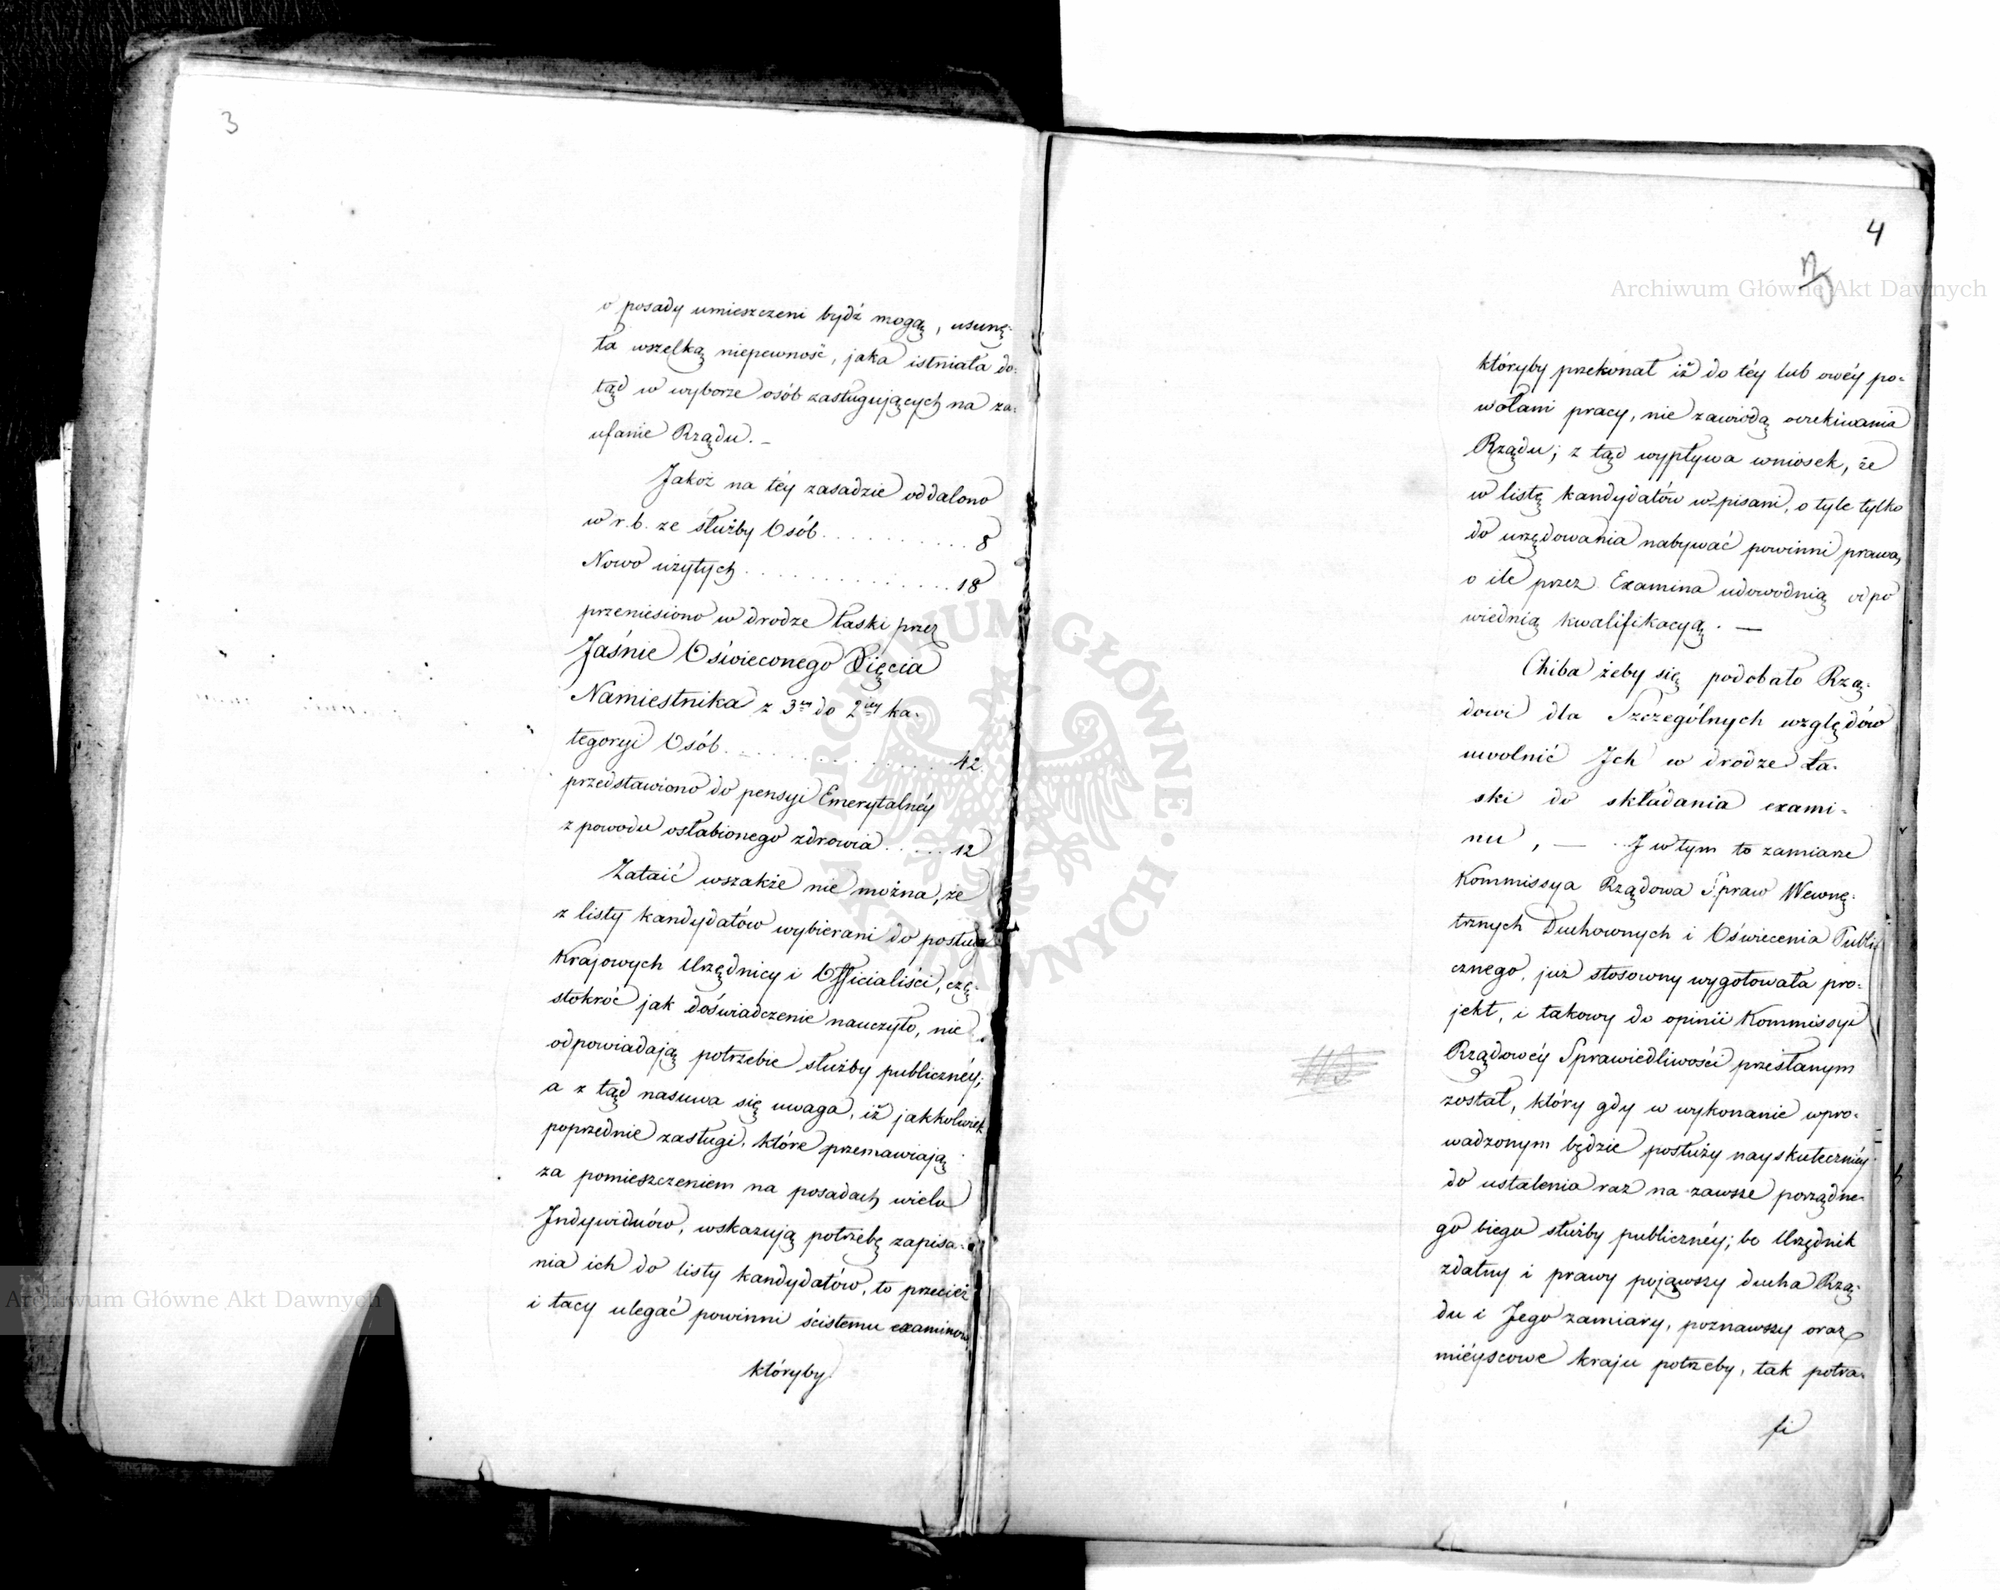 3
o posady umieszczeni bydź mogą, usunę-
ła wszelką niepewność, jaka istniała do-
tąd w wyborze osób zasługujących na za-
ufanie Rządu. –
Jakoż na téy zasadzie oddalono
w r. b. ze służby Osób . . . . . . . . . . 8
Nowo użytych . . . . . . . . . . . . . . 18
przeniesiono w drodze łaski przez
Jaśnie Oświeconego Xięcia
Namiestnika z 3ey do 2iey ka-
tegoryi Osób . . . . . . . . . . . . . 42.
przedstawiono do pensyi Emerytalnéy
z powodu osłabionego zdrowia . . . . . 12
Zataić wszakże nie można, że
z listy kandydatów wybierani do posług
Krajowych Urzędnicy i Officialiści, czę-
stokroć jak doświadczenie nauczyło, nie
odpowiadają potrzebie służby publicznéy;
a z tąd nasuwa się uwaga, iż jakkolwiek
poprzednie zasługi, które przemawiają
za pomieszczeniem na posadach wielu
Indywiduów, wskazują potrzebę zapisa-
nia ich do listy kandydatów, to przecież
i tacy ulegać powinni ścisłemu examinowi
któryby
4
któryby przekonał iż do téy lub owéy po-
wołani pracy, nie zawiodą oczekiwania
Rządu; z tąd wypływa wniosek, że
w listę kandydatów wpisani, o tyle tylko
do urzędowania nabywać powinni prawa,
o ile przez Examina udowodnią odpo
wiednią kwalifikacyą. —
Chiba żeby się podobało Rzą-
dowi dla Szczególnych względów
uwolnić Ich w drodze Ła-
ski do składania exami-
nu, — I w tym to zamiarze
Kommissya Rządowa Spraw Wewnę-
trznych Duchownych i Oświecenia Publi
cznego, już stosowny wygotowała pro-
jekt, i takowy do opinii Kommissyi
Rządowéy Sprawiedliwości przesłanym
został, który gdy w wykonanie wpro-
wadzonym będzie posłuży nayskutecznéy
do ustalenia raz na zawsze porządne-
go biegu służby publicznéy; bo Urzędnik
zdatny i prawy pojąwszy ducha Rzą-
du i Jego zamiary, poznawszy oraz
miéyscowe kraju potrzeby, tak potra-
fi
Archiwum Główne Akt Dawnych
Archiwum Główne Akt Dawnych
ARCHIWUM GŁÓWNE · AKT DAWNYCH ·